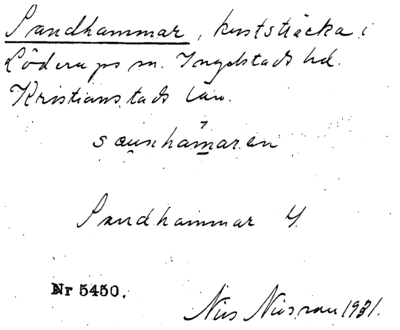 Sandhammar, kuststräcka i
Löderups sn. Ingelstads hd.
Kristianstads län.
Sandhammar
Nr 5450.
Nils Nilsson 1931.